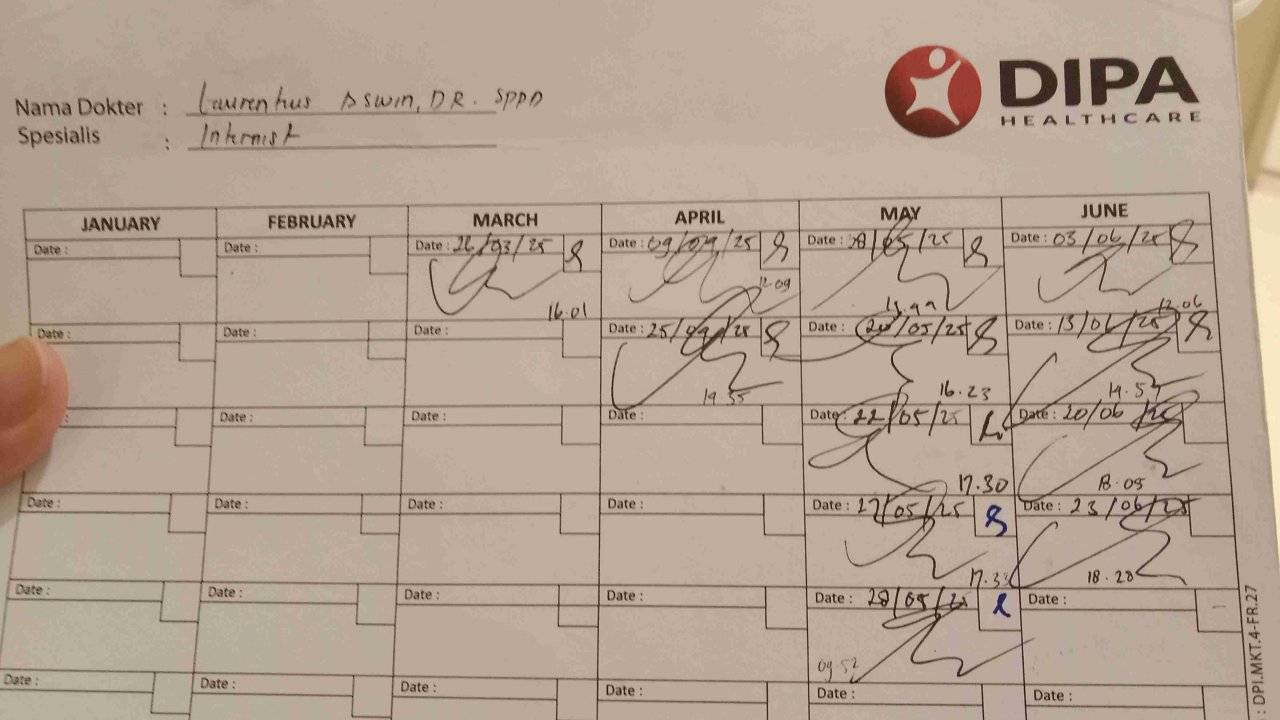 DIPA
HEALTHCARE
Nama Dokter : Laurentius Aswin, DR. SPPD
Spesialis : Internist
JANUARY FEBRUARY MARCH APRIL MAY JUNE
Date : Date : Date : 26/03/25 Date : 09/04/25 Date : 08/05/25 Date : 03/06/25
16.01 12.09 13.44 12.06
Date : Date : Date : Date : 25/04/25 Date : 20/05/25 Date : 13/06/25
19.55 16.23 14.57
Date : Date : Date : Date : 22/05/25 Date : 20/06/25
17.30 18.05
Date : Date : Date : Date : Date : 27/05/25 Date : 23/06/25
17.33 18.28
Date : Date : Date : Date : Date : 28/05/25 Date :
09.52
Date : Date : Date : Date : Date : Date :
: DPI.MKT.4-FR.27